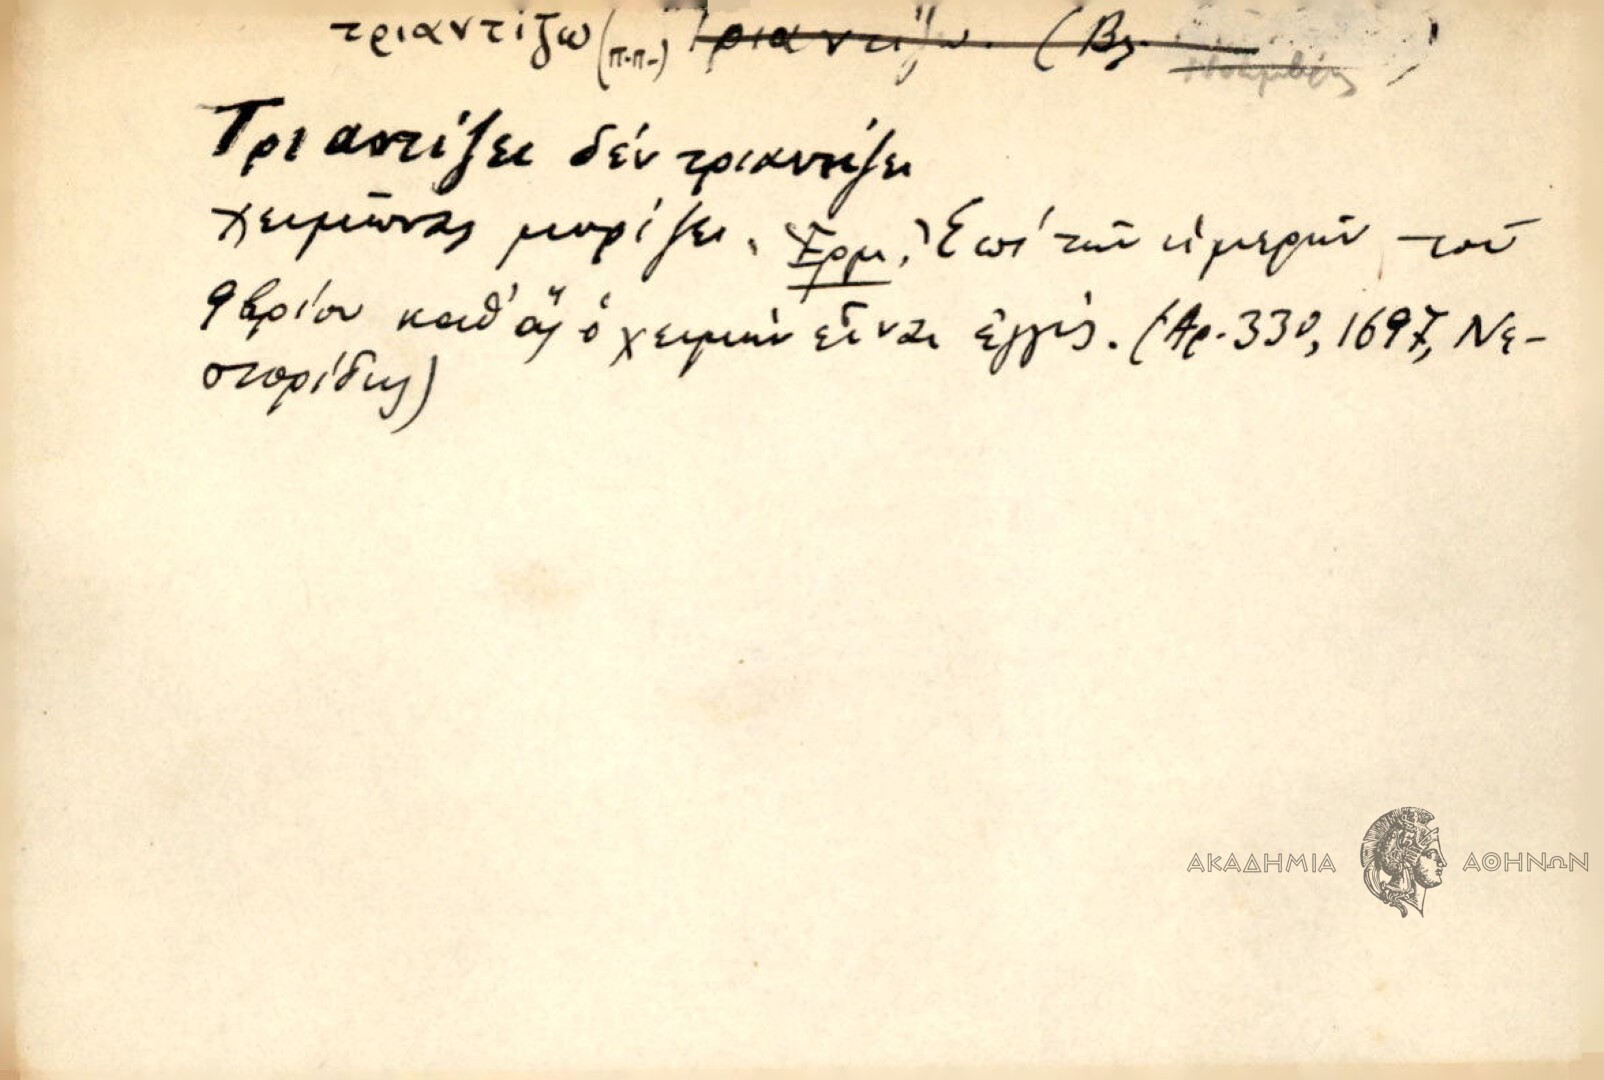 τριαντίζω (π.π.) Τριαντίζω. (Βλ. )
Τριαντίζει δέν τριαντίζει
χειμῶνας μυρίζει. Ἑρμ. Ἐπί τῶν ἡμερῶν τοῦ
9βρίου καθ' ἅς ὁ χειμών εἶναι ἐγγύς. (Ἀρ. 330, 1697, Νε-
στορίδης)
ΑΚΑΔΗΜΙΑ ΑΘΗΝΩΝ